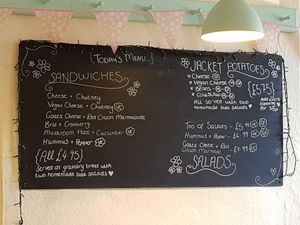 {TODAY'S MENU}
SANDWICHES
Cheese + Chutney
Vegan Cheese + Chutney
Goats Cheese + Red Onion Marmalade
Brie + Cranberry
Mushroom Pate + Cucumber
Hummus + Pepper
{All £4.95}
Served on granary bread with
two homemade side salads
JACKET POTATOES
Cheese
Vegan Cheese
Beans
Coleslaw
All served with two
homemade side salads
{£5.75}
Trio of Salads - £5
Hummus + Pepper - £6
Goats Cheese + Red
Onion Marmalade
SALADS